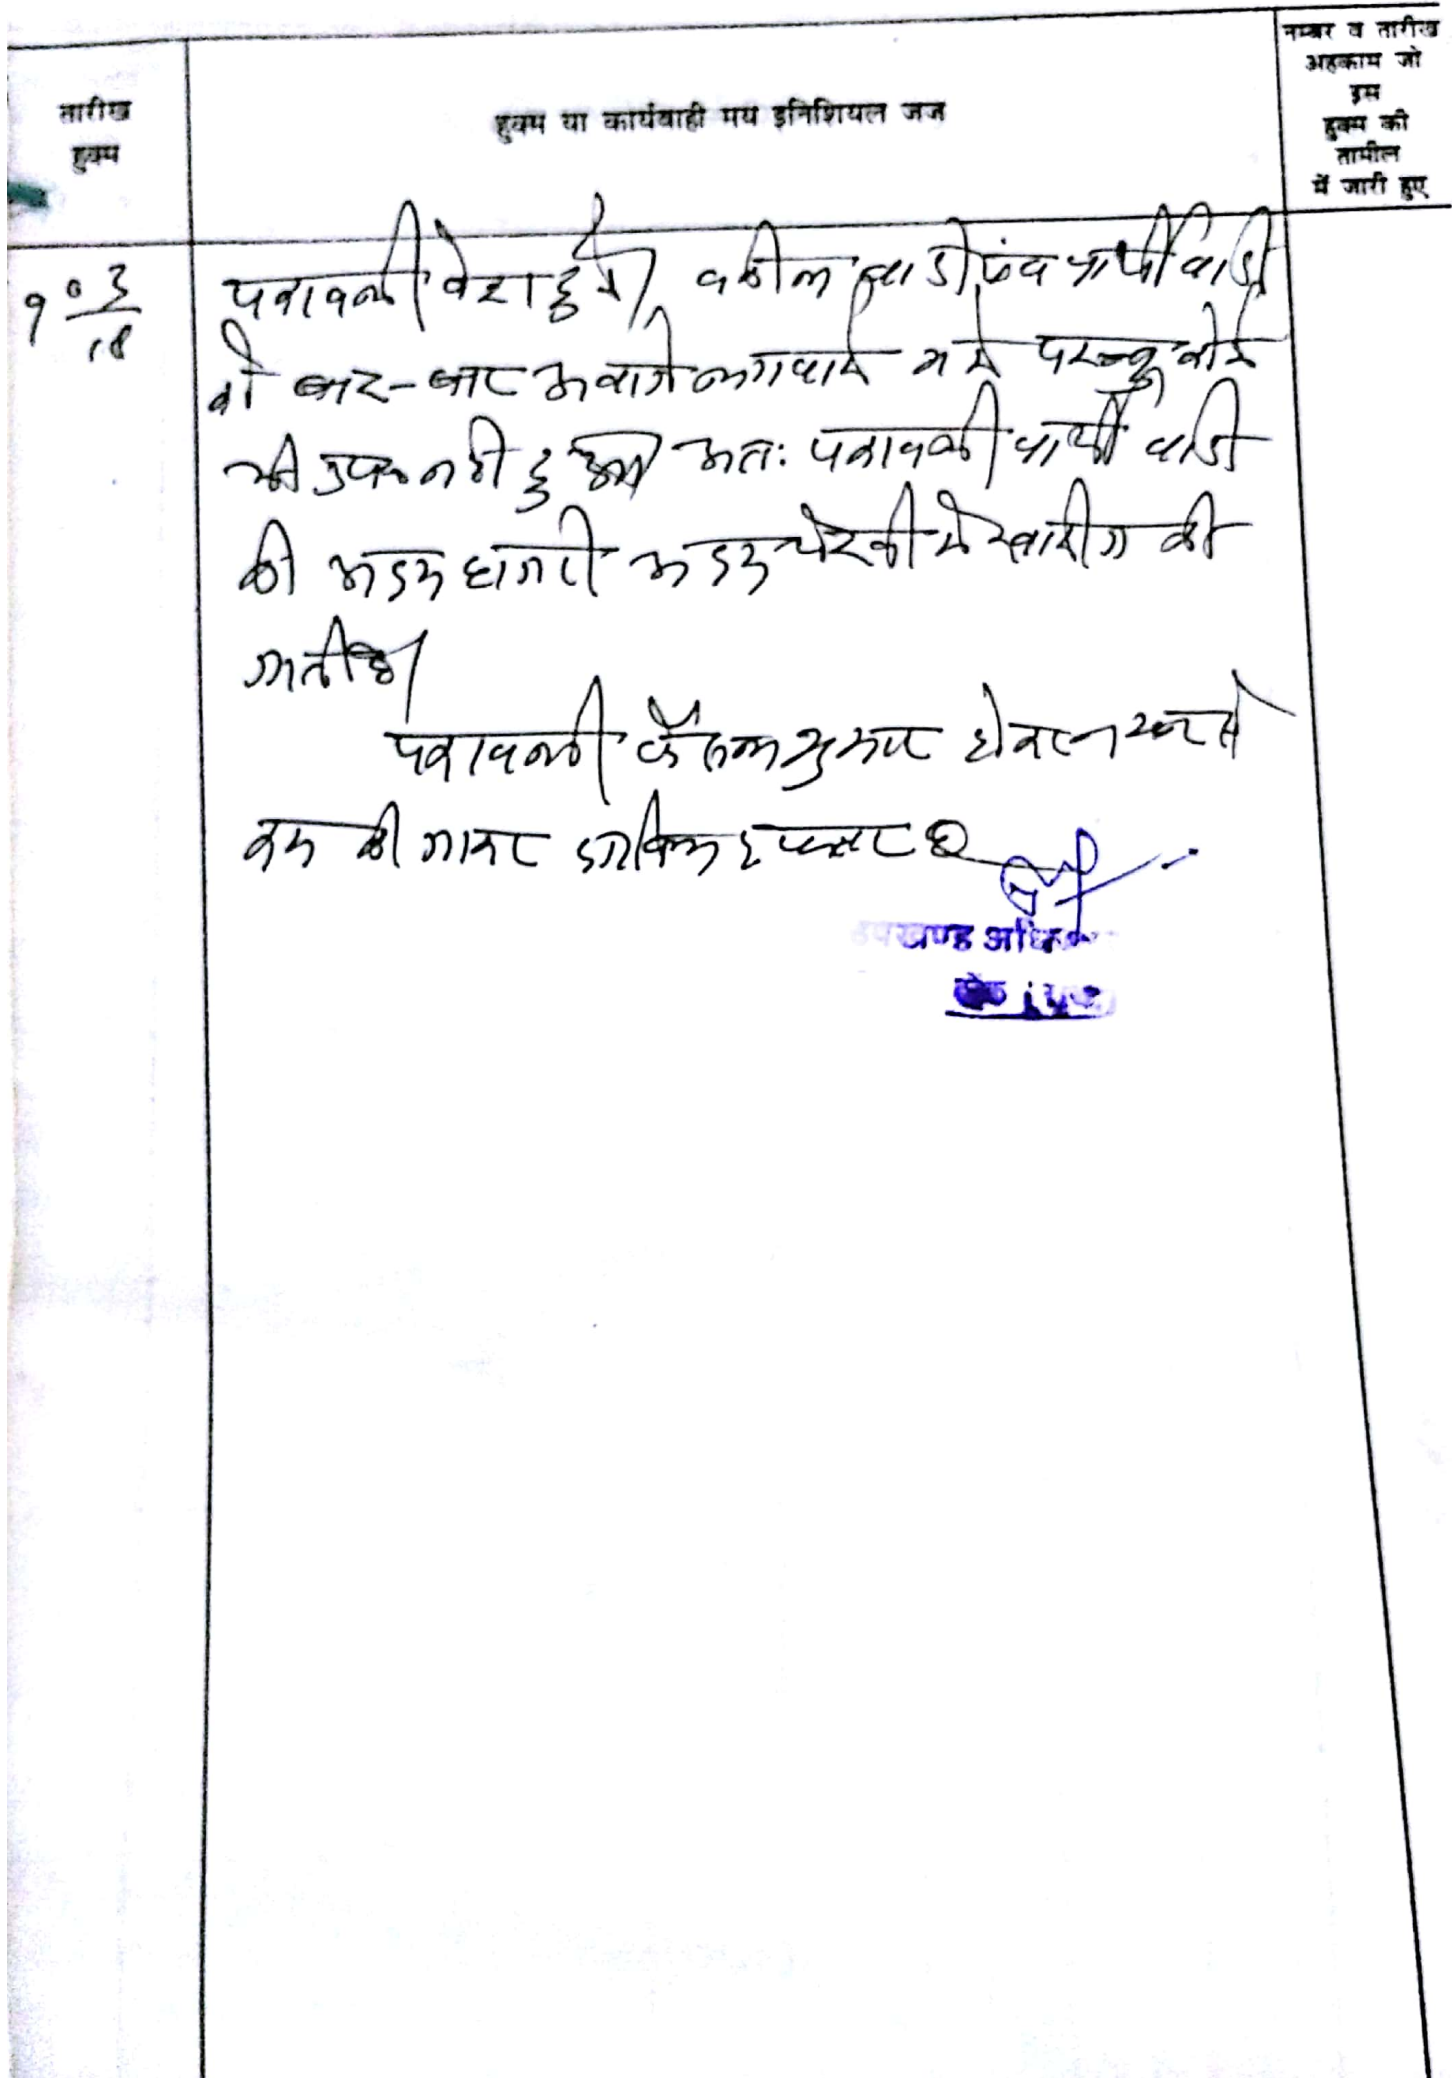 तारीख
हुक्म
हुक्म या कार्यवाही मय इनिशियल जज
नम्बर व तारीख
अहकाम जो
इस
हुक्म की
तामील
में जारी हुए
पत्रावली पेश हुई। वकील वादी एंव प्रार्थी वादी
को बार-बार अवाजे लगवाई गई परन्तु कोई
भी उप० नही हुआ अतः पत्रावली प्रार्थी वादी
की अदम हाजरी अदम पेरवी मे खारीज की
जाती है।
पत्रावली फैसल शुमार होकर नम्बर से
कम की जाकर दाखिल दफ्तर हो
उपखण्ड अधिकारी